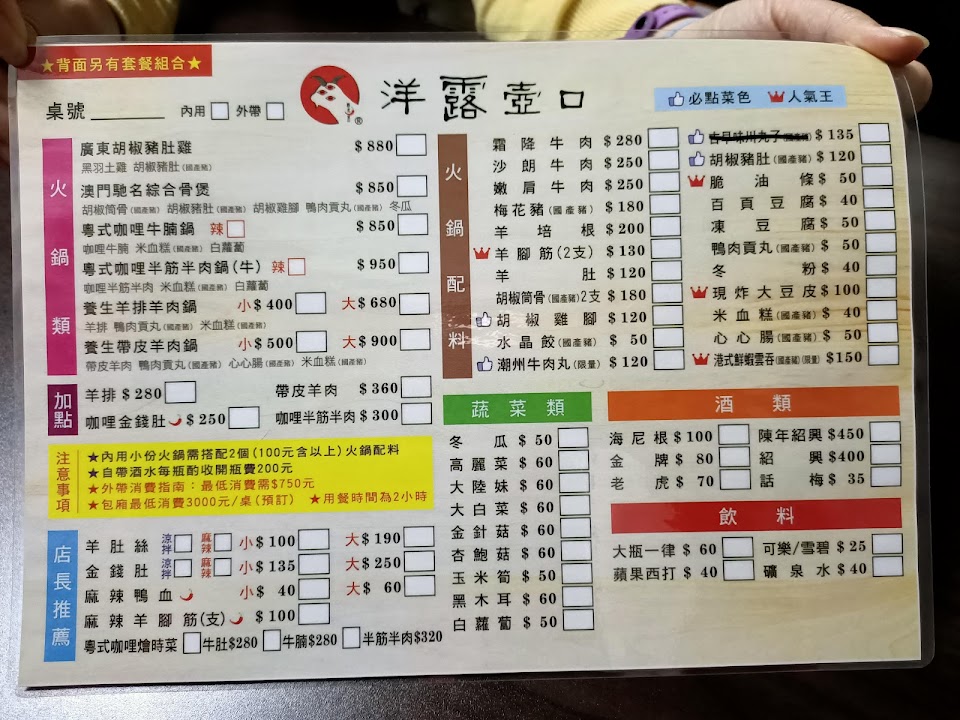 ★背面另有套餐組合★
桌號 內用 外帶
洋露壺口
®
必點菜色 人氣王
火鍋類
廣東胡椒豬肚雞 $880
黑羽土雞 胡椒豬肚(國產豬)
澳門馳名綜合骨煲 $850
胡椒筒骨(國產豬) 胡椒豬肚(國產豬) 胡椒雞腳 鴨肉貢丸(國產豬) 冬瓜
粵式咖哩牛腩鍋 辣 $850
咖哩牛腩 米血糕(國產豬) 白蘿蔔
粵式咖哩半筋半肉鍋(牛) 辣 $950
咖哩半筋半肉 米血糕(國產豬) 白蘿蔔
養生羊排羊肉鍋 小$400 大$680
羊排 鴨肉貢丸(國產豬) 米血糕(國產豬)
養生帶皮羊肉鍋 小$500 大$900
帶皮羊肉 鴨肉貢丸(國產豬) 心心腸(國產豬) 米血糕(國產豬)
加點
羊排 $280 帶皮羊肉 $360
咖哩金錢肚 $250 咖哩半筋半肉 $300
注意事項
★內用小份火鍋需搭配2個(100元含以上)火鍋配料
★自帶酒水每瓶酌收開瓶費200元
★外帶消費指南：最低消費需$750元
★包廂最低消費3000元/桌(預訂) ★用餐時間為2小時
店長推薦
羊肚絲 涼拌 麻辣 小$100 大$190
金錢肚 涼拌 麻辣 小$135 大$250
麻辣鴨血 小$40 大$60
麻辣羊腳筋(支) $100
粵式咖哩燴時菜 牛肚$280 牛腩$280 半筋半肉$320
火鍋配料
霜降牛肉 $280
沙朗牛肉 $250
嫩肩牛肉 $250
梅花豬(國產豬) $180
羊培根 $200
羊腳筋(2支) $130
羊肚 $120
胡椒筒骨(國產豬)2支 $180
胡椒雞腳 $120
水晶餃(國產豬) $50
潮州牛肉丸(限量) $120
$135
胡椒豬肚(國產豬) $120
脆油條 $50
百頁豆腐 $40
凍豆腐 $50
鴨肉貢丸(國產豬) $50
冬粉 $40
現炸大豆皮 $100
米血糕(國產豬) $40
心心腸(國產豬) $50
港式鮮蝦雲吞(國產豬)(限量) $150
蔬菜類
冬瓜 $50
高麗菜 $60
大陸妹 $60
大白菜 $60
金針菇 $60
杏鮑菇 $60
玉米筍 $50
黑木耳 $60
白蘿蔔 $50
酒類
海尼根 $100 陳年紹興 $450
金牌 $80 紹興 $400
老虎 $70 話梅 $35
飲料
大瓶一律 $60 可樂/雪碧 $25
蘋果西打 $40 礦泉水 $40